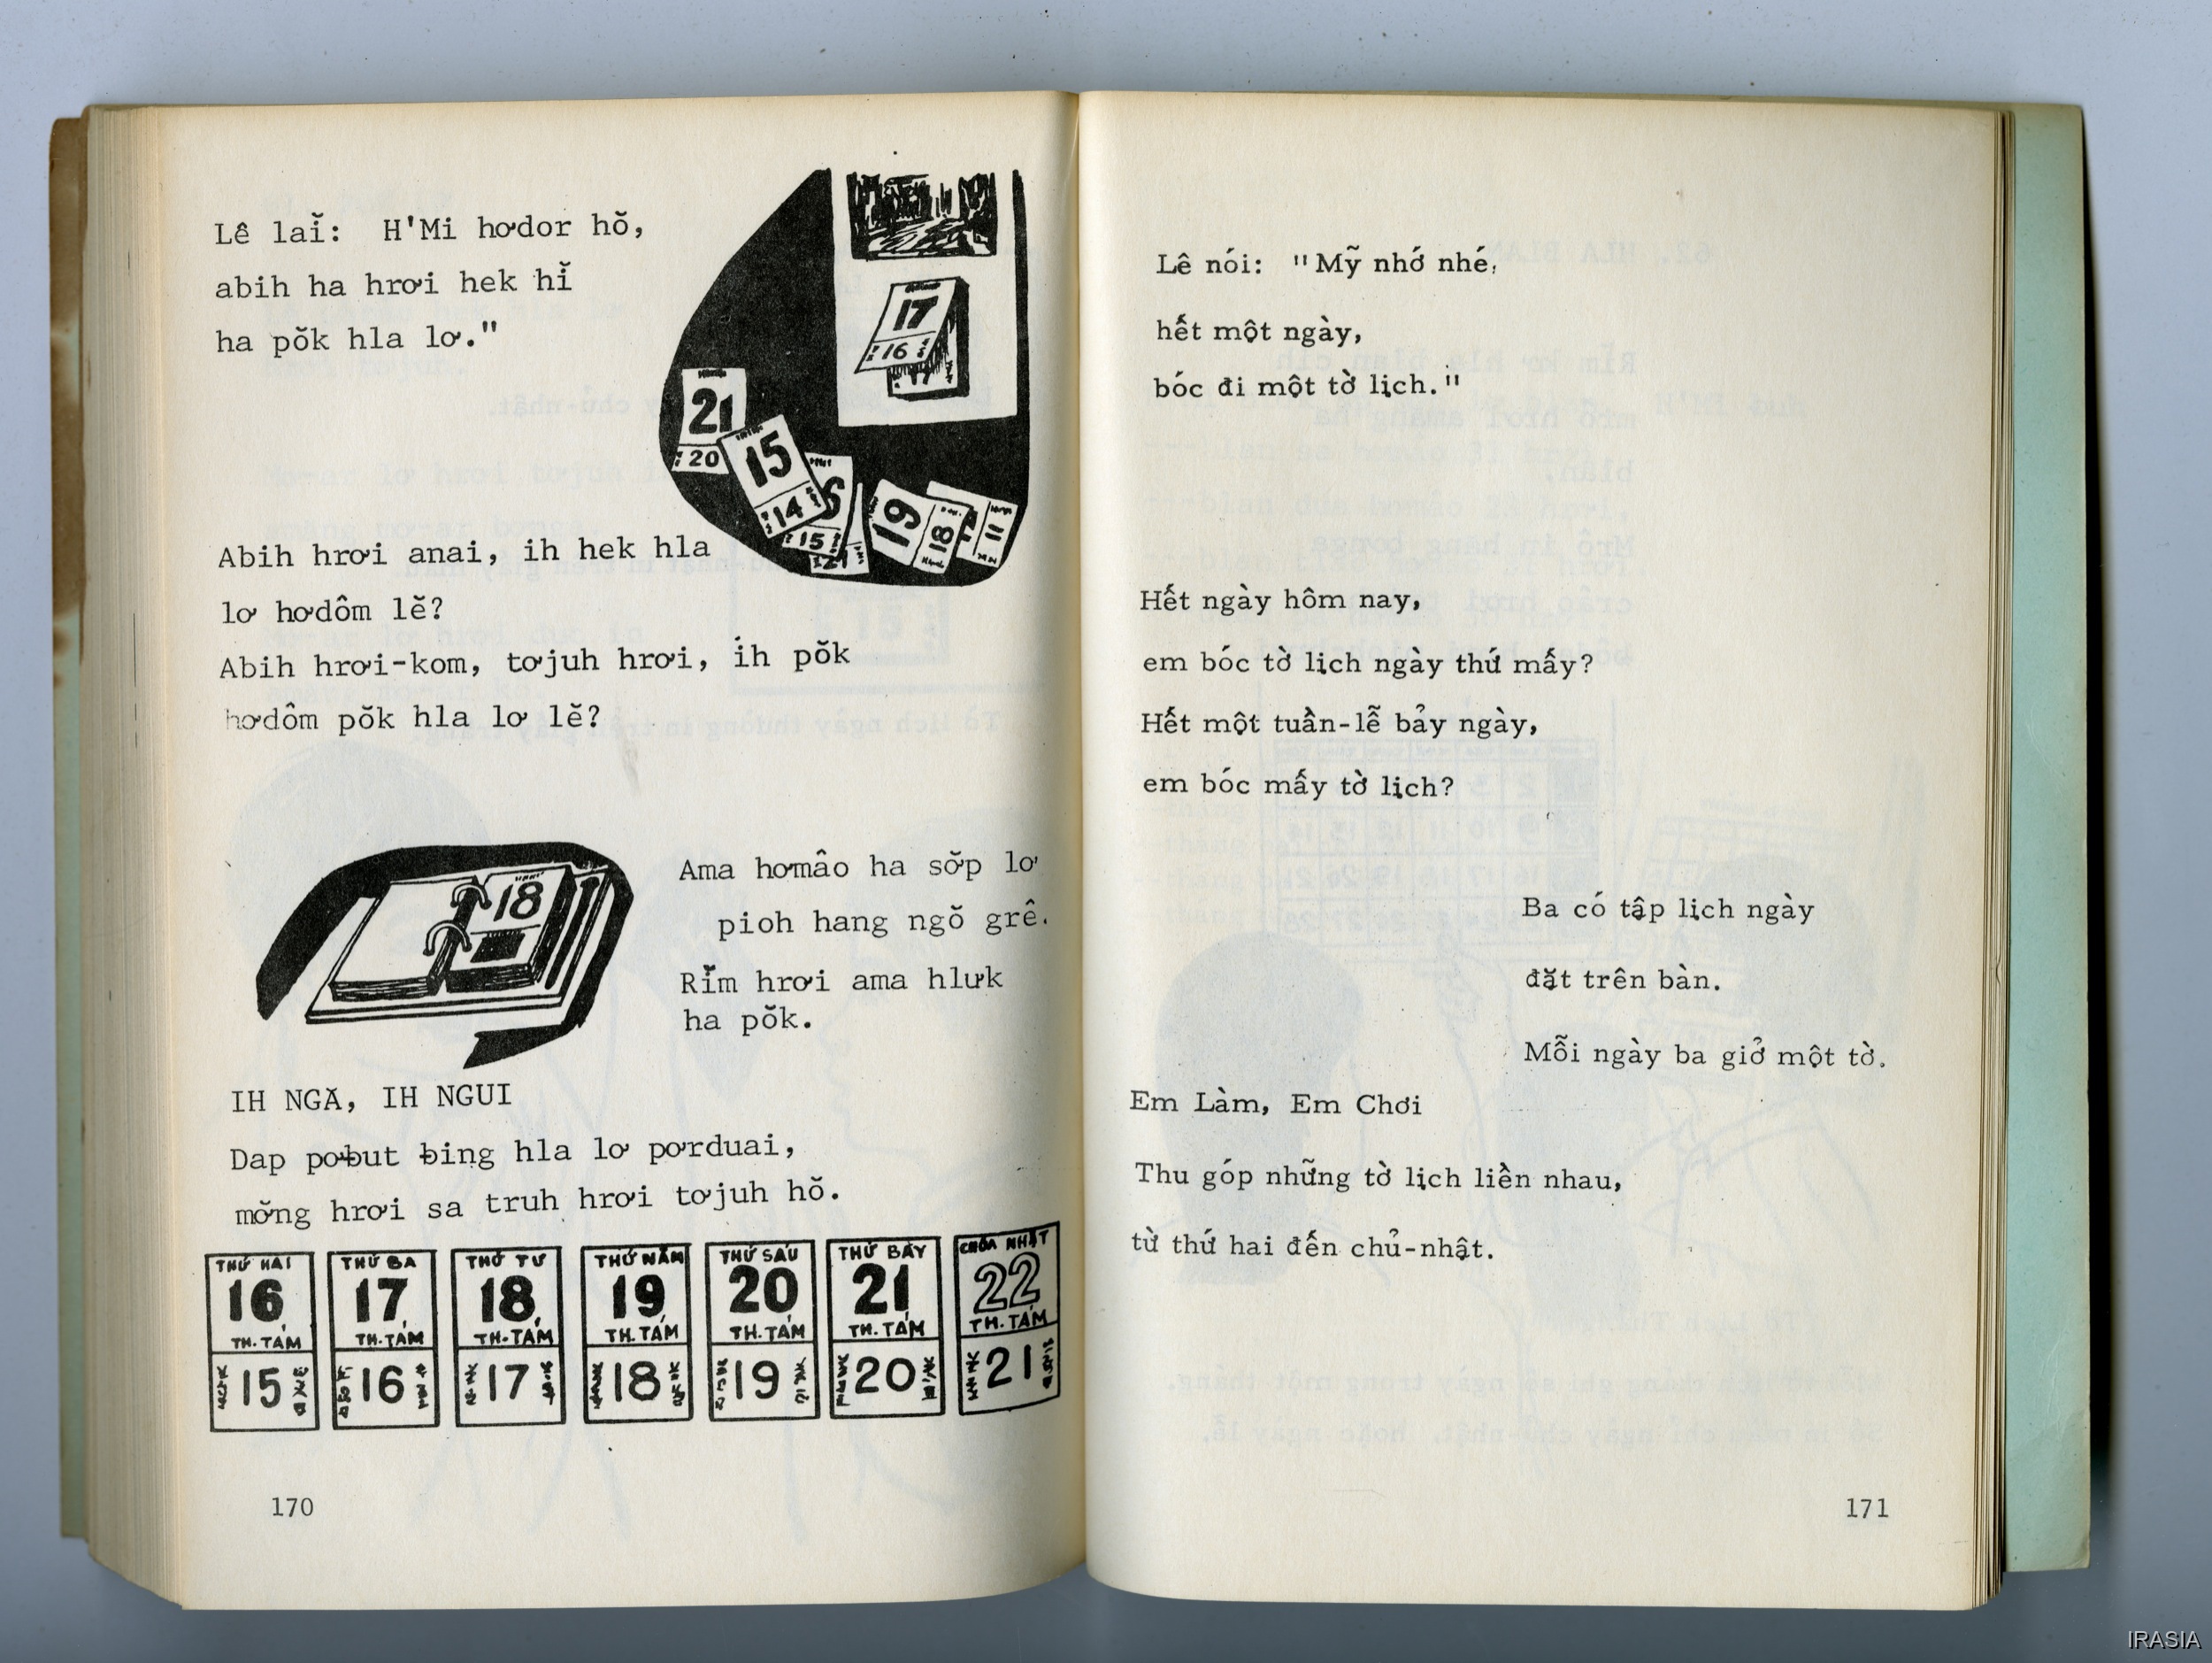 Lê laĭ:  H'Mi hơdor hŏ,
abih ha hrơi hek hĭ
ha pŏk hla lơ."
17
16
17
21
20
15
14
6
15
19
18
11
Abih hrơi anai, ih hek hla
lơ hơdôm lĕ?
Abih hrơi-kom, tơjuh hrơi, ih pŏk
hơdôm pŏk hla lơ lĕ?
18
Ama hơmâo ha sơ̆p lơ
pioh hang ngŏ grê.
Rĭm hrơi ama hlưk
ha pŏk.
IH NGĂ, IH NGUI
Dap pơƀut ƀing hla lơ pơrduai,
mơ̆ng hrơi sa truh hrơi tơjuh hŏ.
THỨ HAI THỨ BA THỨ TƯ THỨ NĂM THỨ SÁU THỨ BẢY CHÚA NHẬT
16 17 18 19 20 21 22
TH. TÁM TH. TÁM TH. TÁM TH. TÁM TH. TÁM TH. TÁM TH. TÁM
15 16 17 18 19 20 21
170
Lê nói:  "Mỹ nhớ nhé,
hết một ngày,
bóc đi một tờ lịch."
Hết ngày hôm nay,
em bóc tờ lịch ngày thứ mấy?
Hết một tuần-lễ bảy ngày,
em bóc mấy tờ lịch?
Ba có tập lịch ngày
đặt trên bàn.
Mỗi ngày ba giở một tờ.
Em Làm, Em Chơi
Thu góp những tờ lịch liền nhau,
từ thứ hai đến chủ-nhật.
171
IRASIA